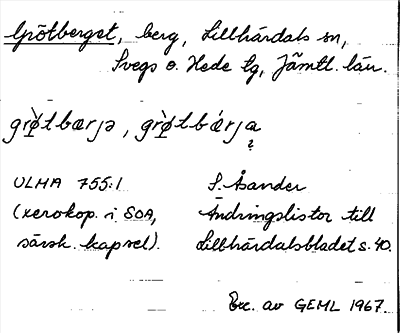 Grötberget, berg, Lillhärdals sn,
Svegs o. Hede tg, Jämtl. län.
grø̀tbærjə, grø̀tbǽrja
?
ULMA 755:1 S. Åsander
(xerokop. i SOA, Ändringslistor till
särsk. kapsel). Lillhärdalsbladet s. 40.
Exc. av GEML 1967